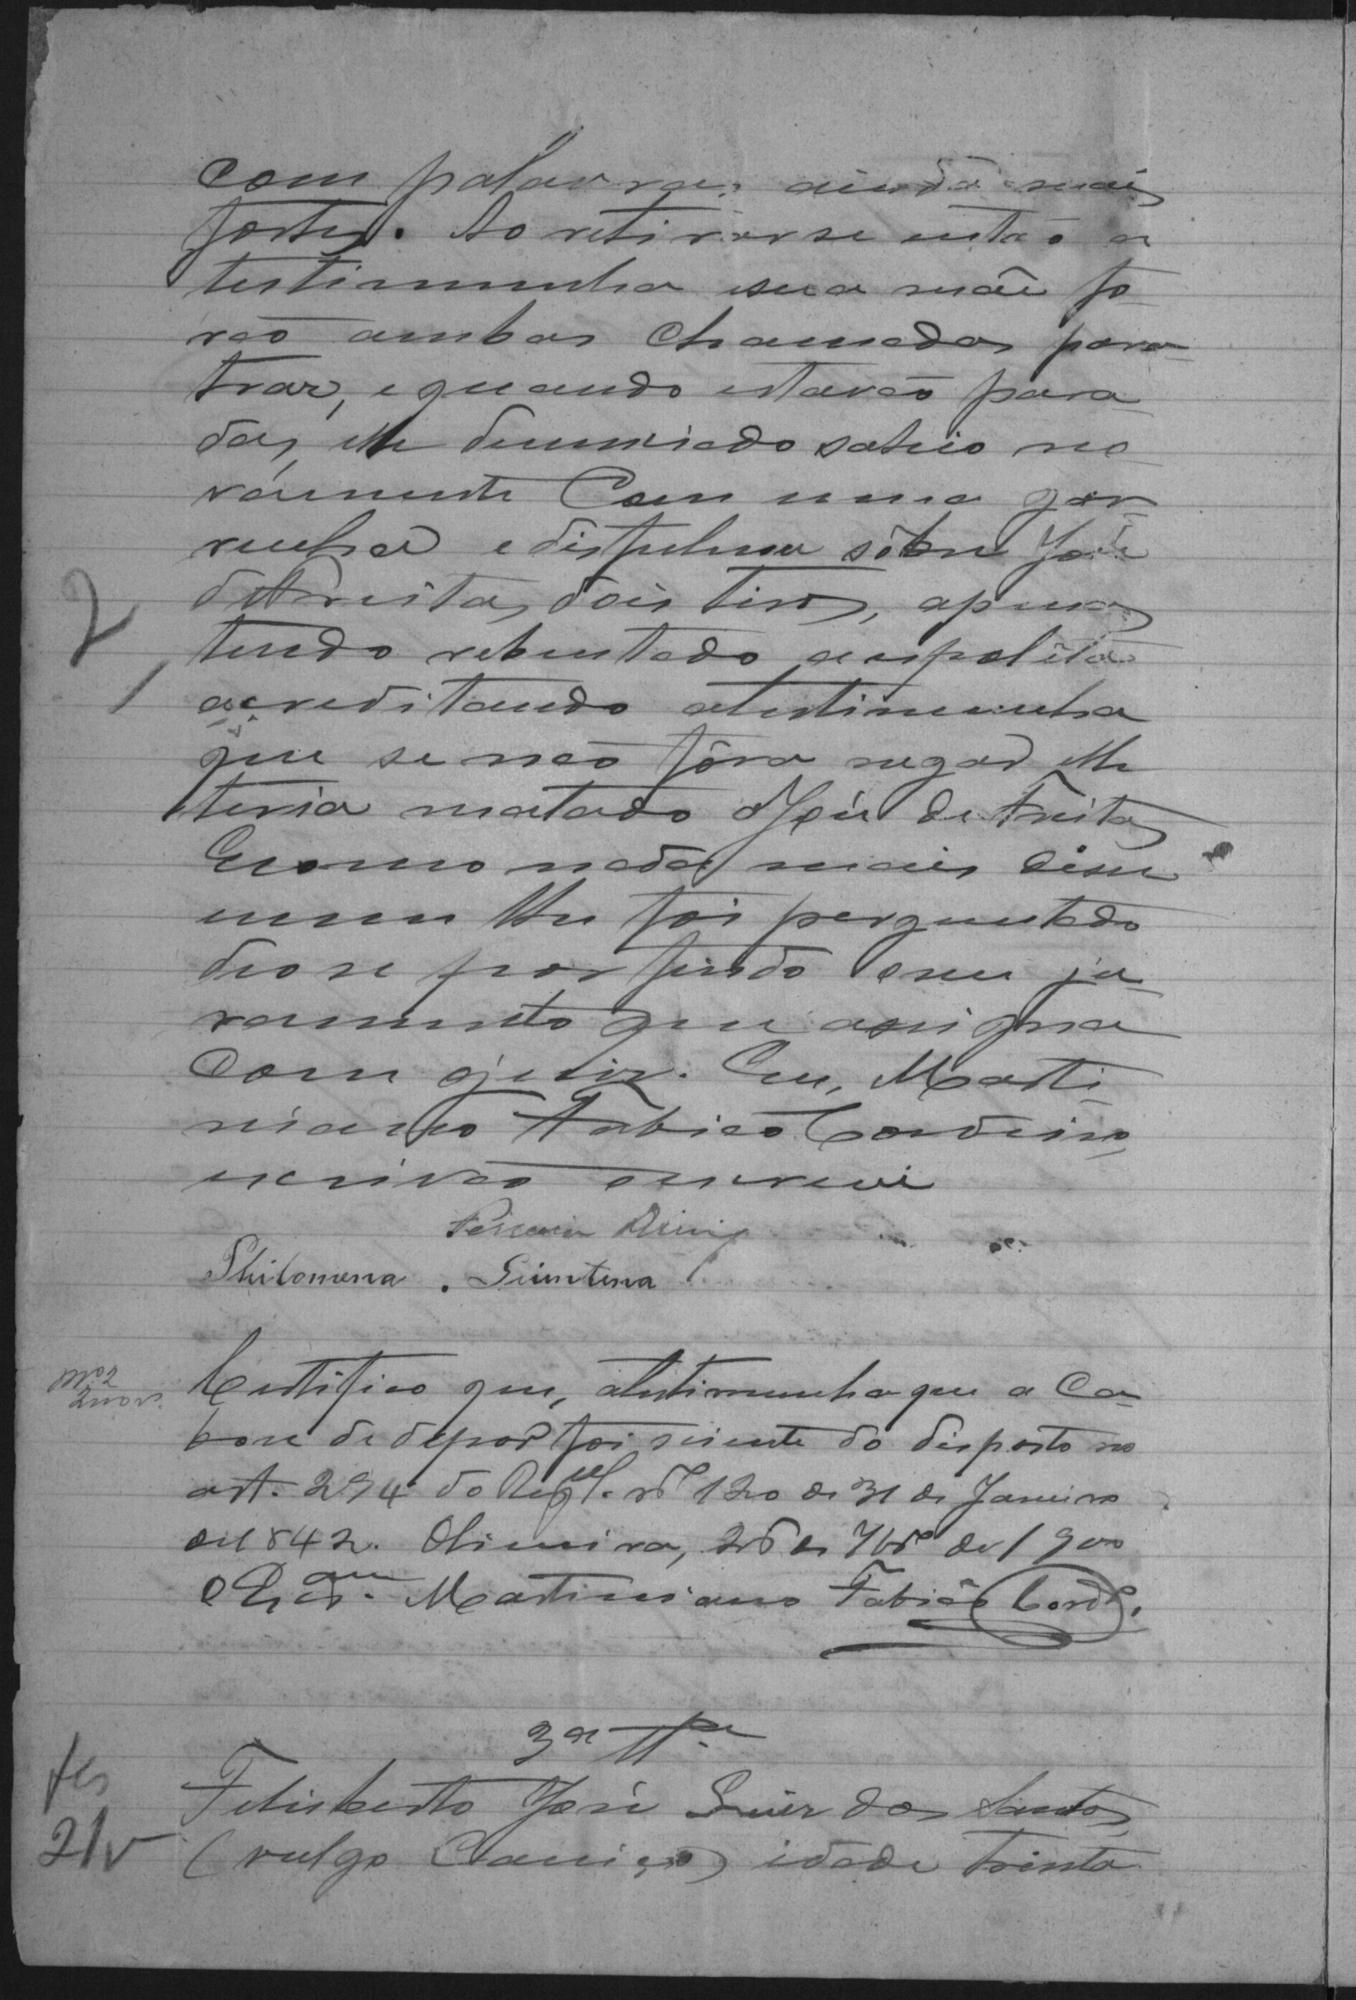 com palavras ainda mais
fortes. Ao retirarse então a
testimunha e sua mãe fo
rão ambas chamadas para
traz, e quando estavão para
das, elle denunciado sahio no
vamente com uma gar
rucha e disparou sôbre José
de Freitas dois tiros, apenas
tendo rebentado a espoléta
acreditando a testimunha
que se não fôra negar elle
teria matado a José de Freitas
E como nada mais disse
nem lhe foi perguntado
deose por findo seu ju
ramento que assigna
com o juiz. Eu, Marti
niano Fabião Cordeiro
escrivão o escrevi
Philomena . Quintina
2
Certifico que, a testimunha que a ca
bou de depor foi sciente do disposto no
art. 294 do Regul. nº 120 de 31 de Janeiro
de 1842. Oliveira, 26 de 7bro de 1900
O Escram. Martiniano Fabião Cordo.
3a Tta
Felisberto José Luiz dos Santos
(vulgo Caniço) idade trinta
fls
21v